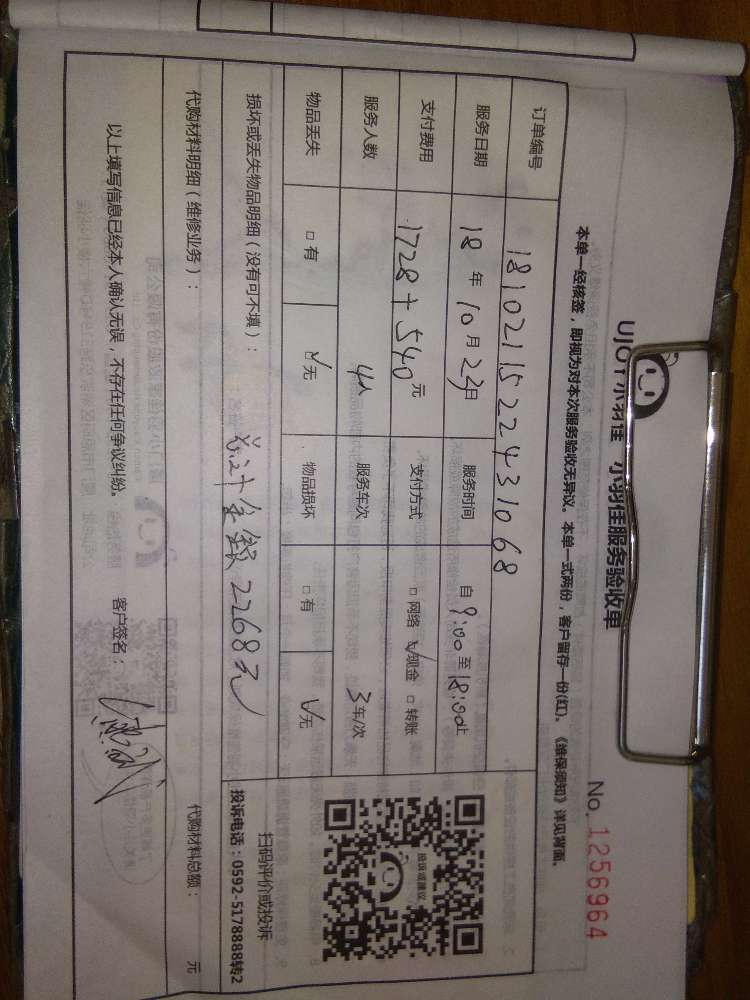 UJOY小羽佳 小羽佳服务验收单
No. 1256964
本单一经核签，即视为对本次服务验收无异议。本单一式两份，客户留存一份(红)。《维保须知》详见背面。
订单编号 18102115224431068
服务日期 18 年 10 月 23 日 服务时间 自 9:00 至 18:00 止
支付费用 1728+540 元 支付方式 □ 网络 ☑ 现金 □ 转账
服务人数 4人 服务车次 3 车/次
物品丢失 □ 有 ☑ 无 物品损坏 □ 有 ☑ 无
损坏或丢失物品明细（没有可不填）：
总计金额2268元
投诉或建议
扫码评价或投诉
投诉电话：0592-5178888转2
代购材料明细（维修业务）： 代购材料总额： 元
以上填写信息已经本人确认无误，不存在任何争议纠纷。 客户签名：